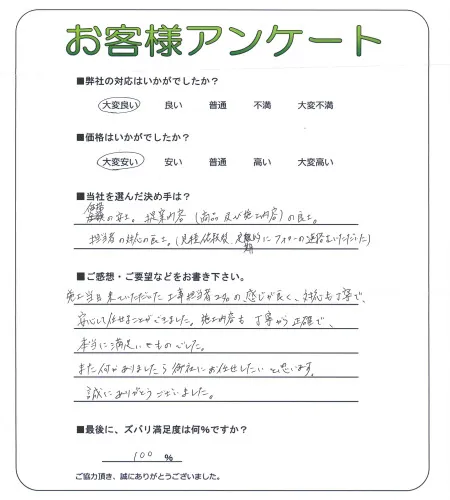 お客様アンケート
■弊社の対応はいかがでしたか？
大変良い 良い 普通 不満 大変不満
■価格はいかがでしたか？
大変安い 安い 普通 高い 大変高い
■当社を選んだ決め手は？
の安さ。提案内容（商品及び施工内容）の良さ。
担当者の対応の良さ。（見積依頼後、定期的にフォローの連絡をいただいた）
■ご感想・ご要望などをお書き下さい。
施工当日来ていただいた工事担当者2名の感じが良く、対応も丁寧で、
安心して任せることができました。施工内容も丁寧かつ正確で、
本当に満足いくものでした。
また何かありましたら御社にお任せしたいと思います。
誠にありがとうございました。
■最後に、ズバリ満足度は何%ですか？
100 %
ご協力頂き、誠にありがとうございました。